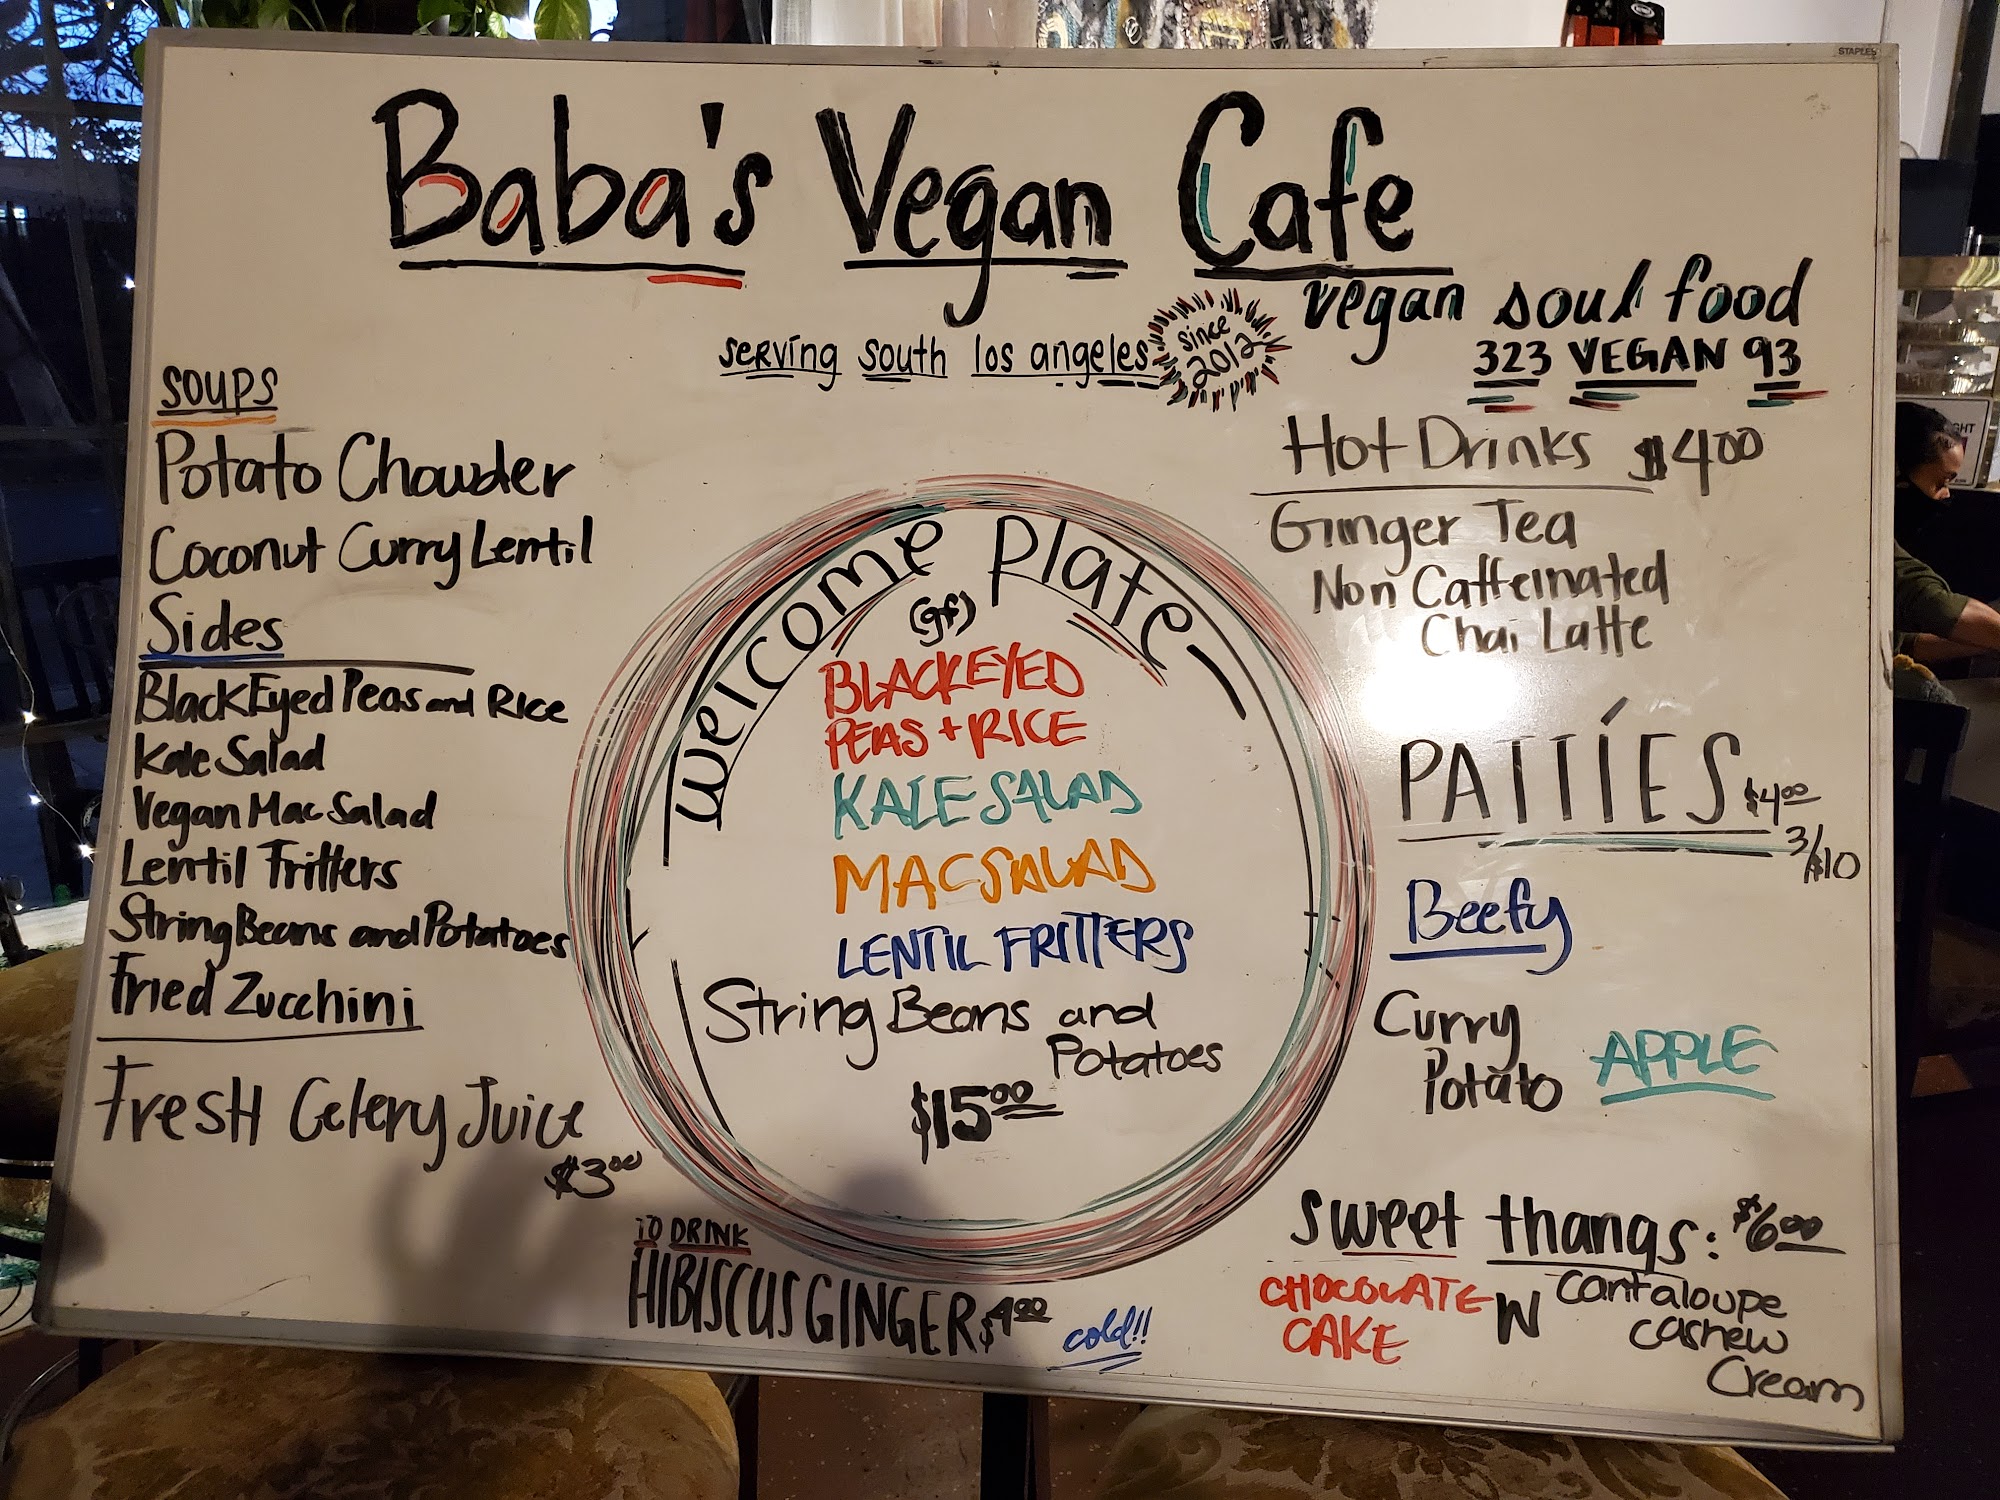 STAPLES
Baba's Vegan Cafe
vegan soul food
323 VEGAN 93
serving south los angeles
since
2012
SOUPS
Potato Chowder
Coconut Curry Lentil
Sides
BlackEyed Peas and Rice
Kale Salad
Vegan Mac Salad
Lentil Fritters
String Beans and Potatoes
Fried Zucchini
Fresh Celery Juice
$3.00
welcome plate
(gf)
BLACKEYED
PEAS + RICE
KALE SALAD
MAC SALAD
LENTIL FRITTERS
String Beans and
Potatoes
$15.00
TO DRINK
HIBISCUS GINGER $4.00
cold!!
Hot Drinks $4.00
Ginger Tea
Non Caffeinated
Chai Latte
PATTIES $4.00
3/$10
Beefy
Curry
Potato
APPLE
sweet thangs: $6.00
CHOCOLATE
CAKE
W
cantaloupe
cashew
Cream